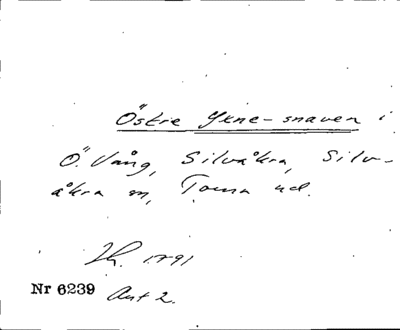 Östre Ykne-snaven i
Ö. Vång, Silvåkra, Silv-
åkra sn, Torna hd.
Lh. 1791
Nr 6239 Akt 2.